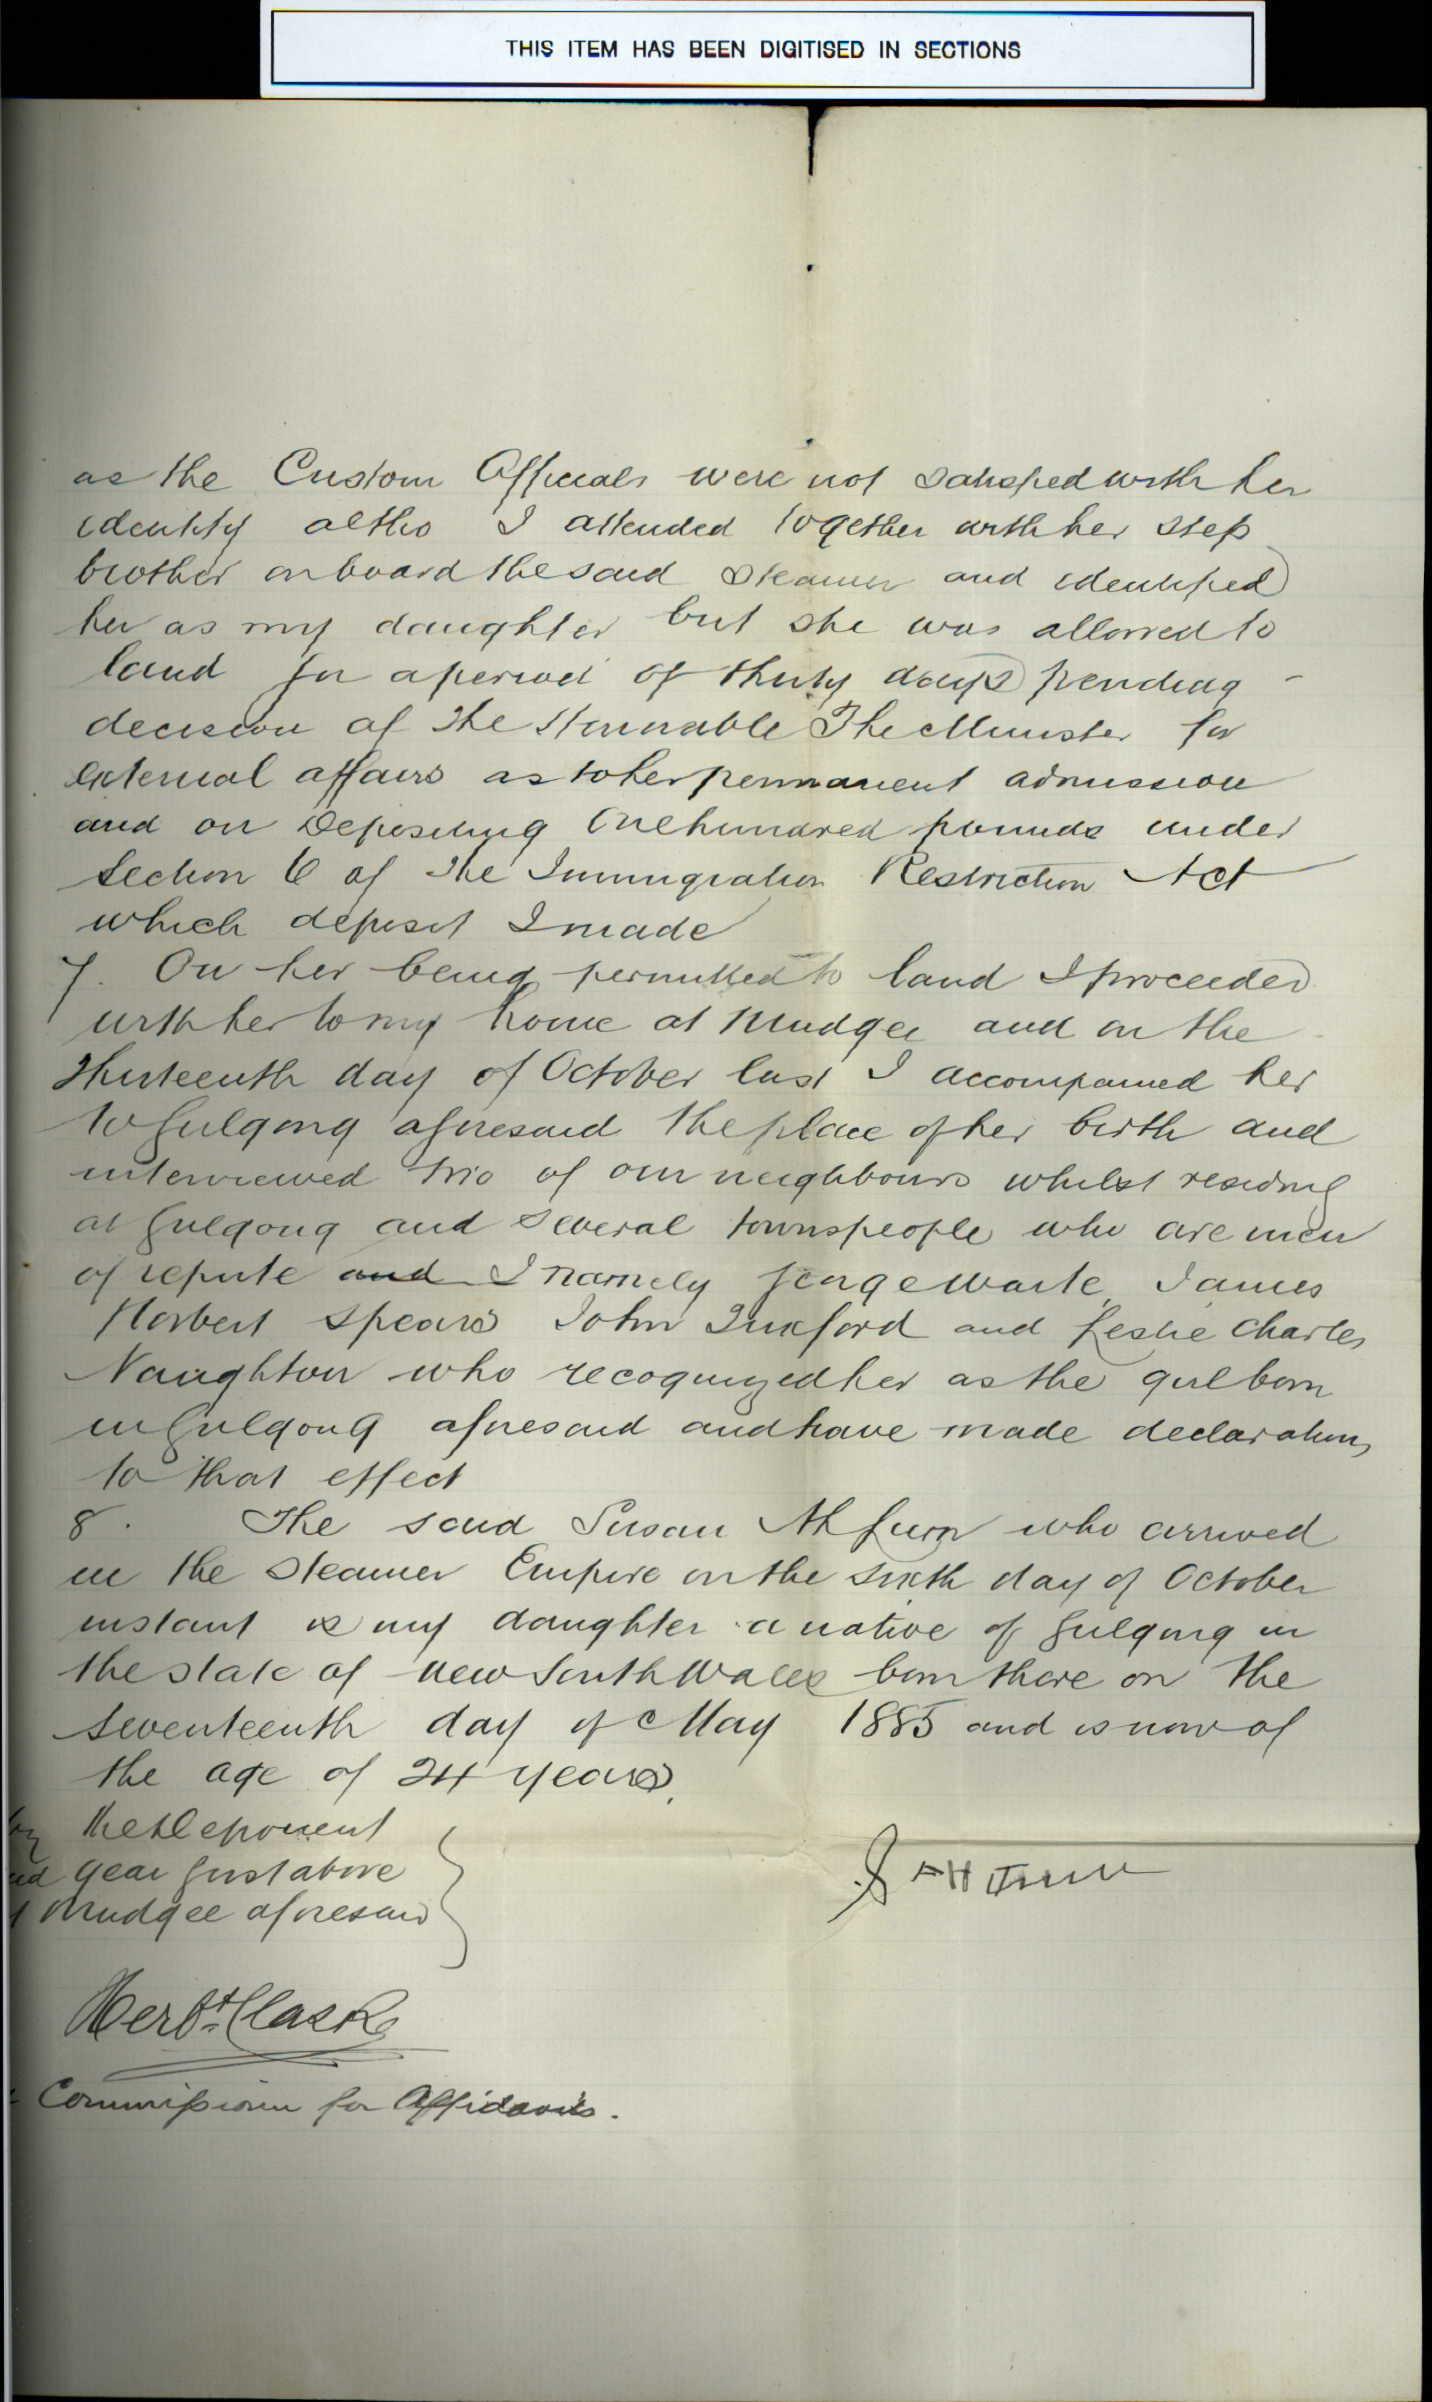 THIS ITEM HAS BEEN DIGITISED IN SECTIONS
as the Custom Officials were not satisfied with her
identity altho I attended together with her step
brother on board the said Steamer and identified
her as my daughter but she was allowed to
land for a period of thirty days pending
decision of the Honorable The Minister for
External affairs as to her permanent admission
and on Depositing One hundred pounds under
Section 6 of the Immigration Restriction Act
which deposit I made
7. On her being permitted to land I proceeded
with her to my home at Mudgee and on the
thirteenth day of October last I accompanied her
to Gulgong aforesaid the place of her birth and
interviewed two of our neighbours whilst residing
at Gulgong and several townspeople who are men
of repute and I namely George Warte James
Herbert Spears John Tuxford and Leslie Charles
Naughton who recognized her as the girl born
in Gulgong aforesaid and have made declarations
to that effect
8. The said Susan Ah Fum who arrived
in the steamer Empire on the sixth day of October
instant is my daughter a native of Gulgong in
the state of New South Wales born there on the
seventeenth day of May 1885 and is now of
the age of 24 years.
by the Deponent
and year first above
Mudgee aforesaid
Herbt. Clark
Commissioner for Affidavits.